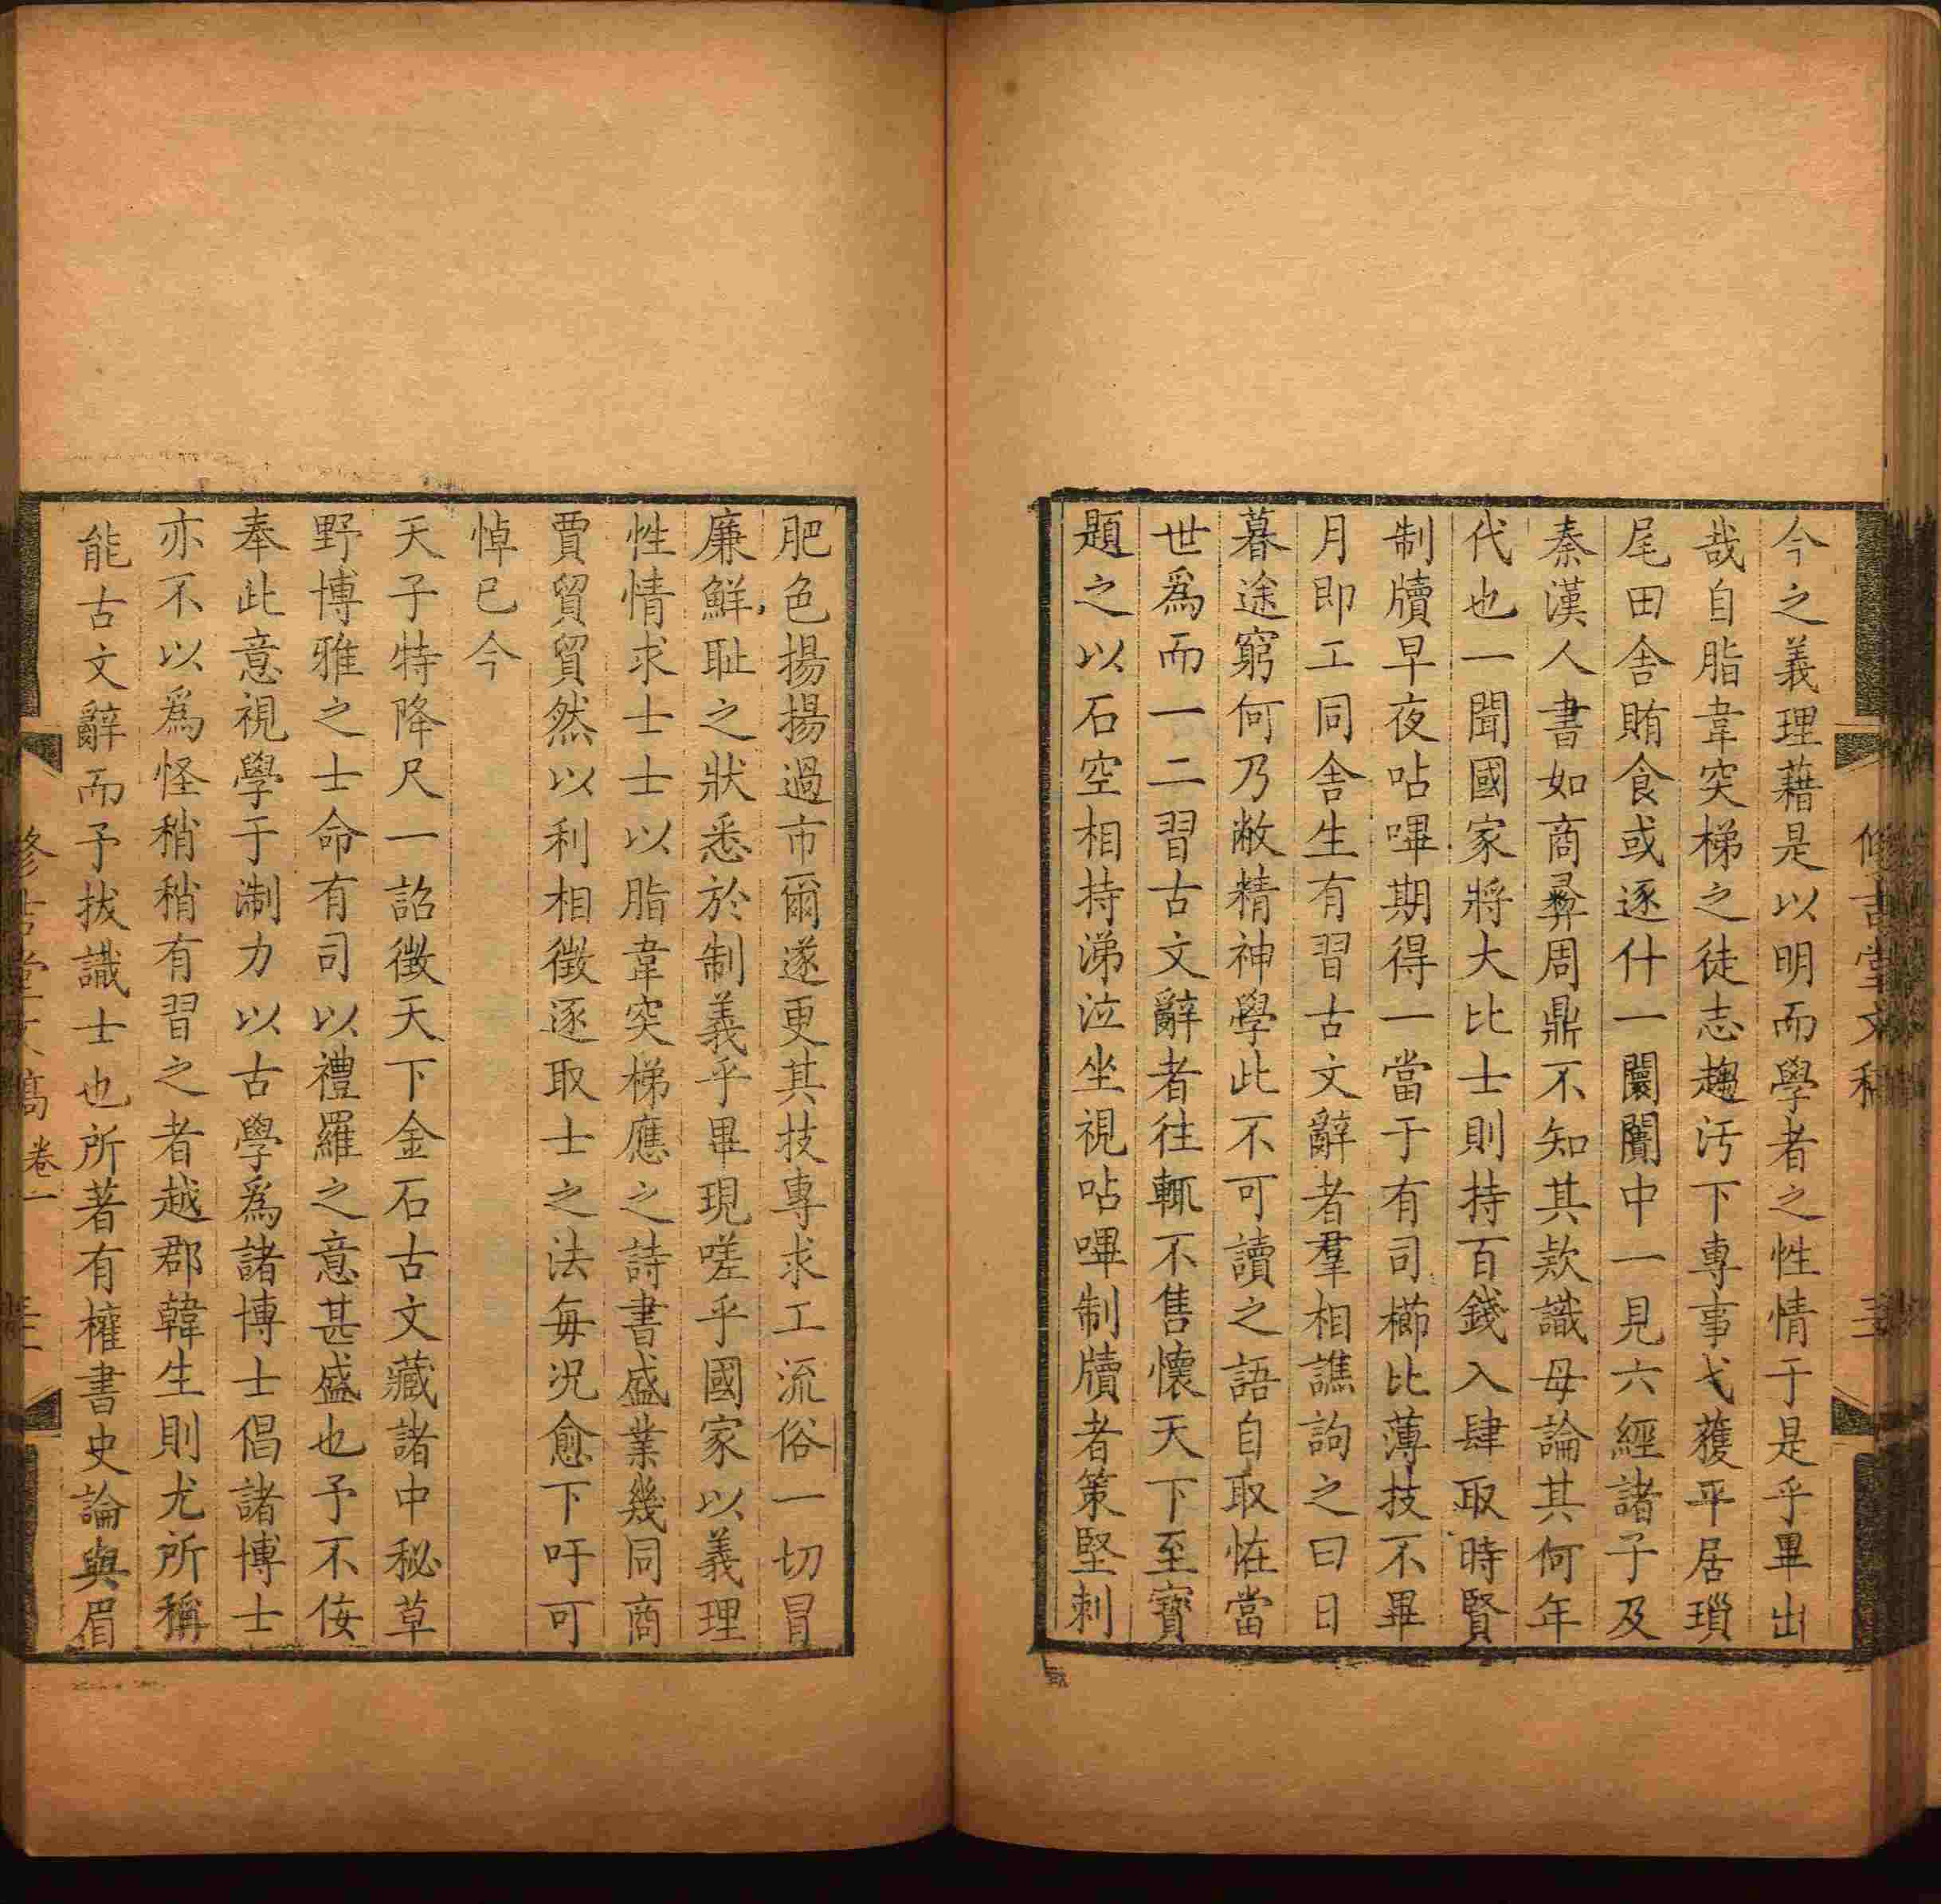 今之義理藉是以明而學者之性情于是乎畢出
哉自脂韋突梯之徒志趨汚下專事弋獲平居瑣
尾田舍賄食或逐什一闤闠中一見六經諸子及
秦漢人書如商彝周鼎不知其款識毋論其何年
代也一聞國家將大比士則持百錢入肆取時賢
制牘早夜呫嗶期得一當于有司櫛比薄技不畢
月即工同舍生有習古文辭者羣相譙訽之曰日
暮途窮何乃敝精神學此不可讀之語自取恠當
世爲而一二習古文辭者往輒不售懷天下至寶
題之以石空相持涕泣坐視呫嗶制牘者策堅刺
肥色揚揚過市爾遂更其技專求工流俗一切冒
廉鮮恥之狀悉於制義乎畢現嗟乎國家以義理
性情求士士以脂韋突梯應之詩書盛業幾同商
賈貿貿然以利相徵逐取士之法每况愈下吁可
悼已今
天子特降尺一詔徵天下金石古文藏諸中秘草
野博雅之士命有司以禮羅之意甚盛也予不侫
奉此意視學于淛力以古學爲諸博士倡諸博士
亦不以爲怪稍稍有習之者越郡韓生則尤所稱
能古文辭而予拔識士也所著有櫂書史論與眉
修吉堂文稿 卷一